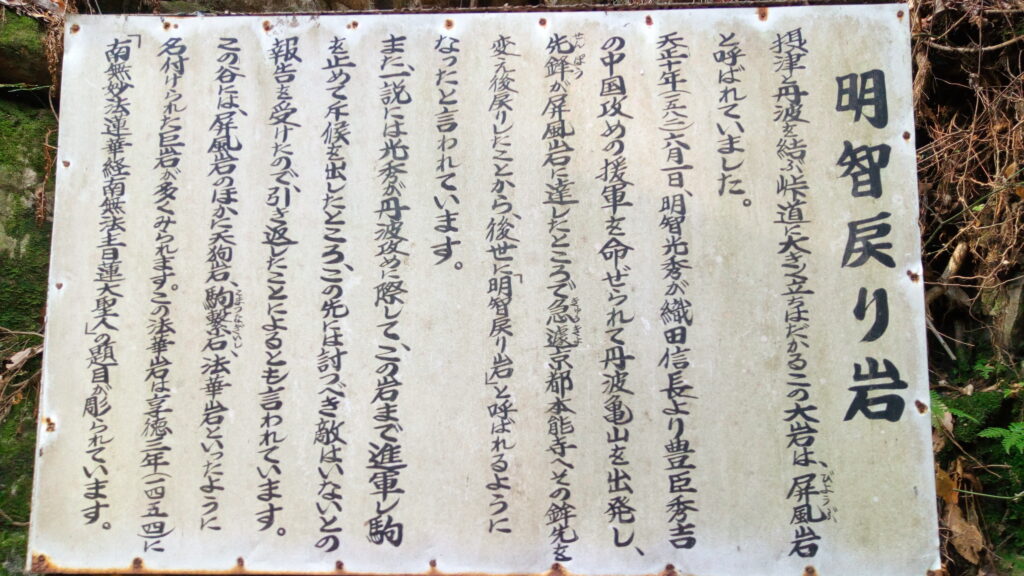 明智戻り岩
摂津と丹波を結ぶ峠道に大きく立ちはだかるこの大岩は、屏風岩
と呼ばれていました。
天正十年(一五八二)六月一日、明智光秀が織田信長より豊臣秀吉
の中国攻めの援軍を命ぜられて丹波亀山を出発し、
先鋒が屏風岩に達したところで急遽京都本能寺へその鋒先を
変え後戻りしたことから、後世に「明智戻り岩」と呼ばれるように
なったと言われています。
また、一説には光秀が丹波攻めに際して、この岩まで進軍し駒
を止めて斥候を出したところ、この先には討つべき敵はいないとの
報告を受けたので引き返したことによるとも言われています。
この谷には、屏風岩のほかに天狗岩、駒繋石、法華岩といったように
名付けられた巨岩が多くみられます。この法華岩は享徳三年(一四五四)に
「南無妙法蓮華経南無法主日蓮大聖人」の題目が彫られています。